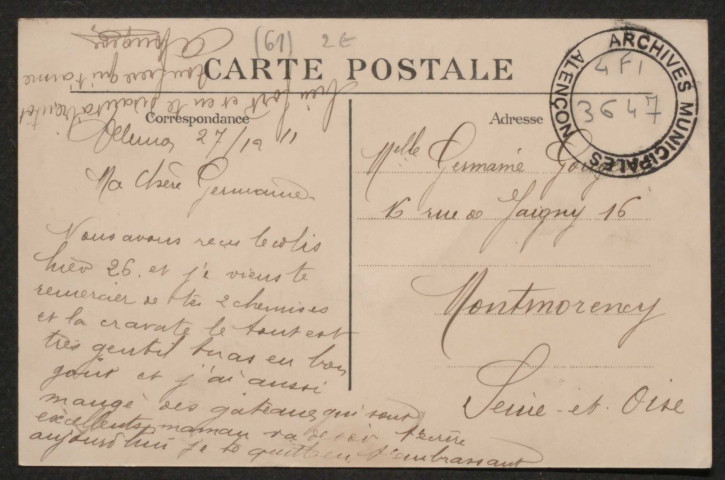 (61) 2E
CARTE POSTALE
ARCHIVES MUNICIPALES ALENÇON
4 FI
3647
Correspondance
Adresse
27/12 11
Ma Chère Germaine.
Nous avons reçu le colis
hièr 26. et je viens te
remercier de tes 2 chemises
et la cravate le tout est
très gentil tu as eu bon
gout et j'ai aussi
mangé des gâteaux qui sont
excellents, maman va ce soir t'écrire
aujourd'hui je te quitte en t'embrassant
bien fort et en te
ton frere qui t'aime
Melle Germaine
16 rue de Jaigny 16
Montmorency
Seine-et-Oise